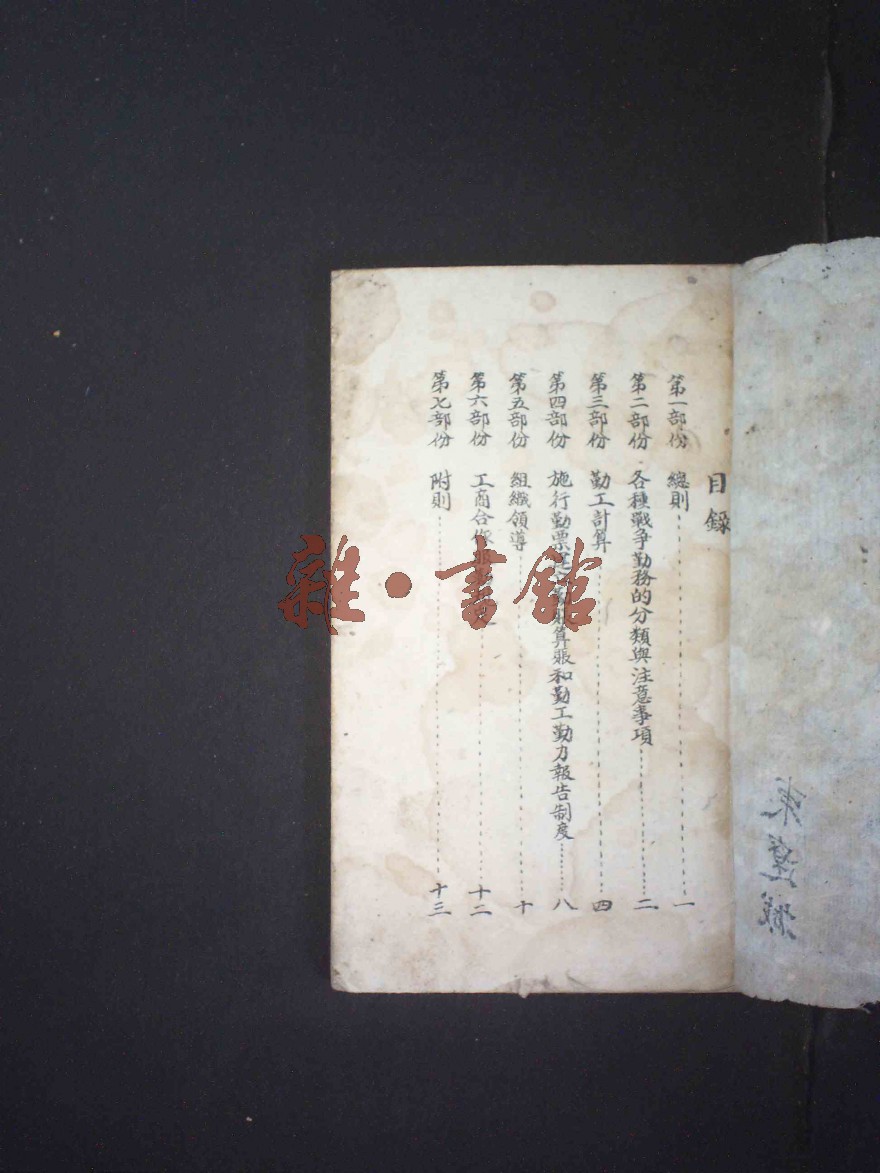 目錄
第一部份 總則 一
第二部份 各種戰爭勤務的分類與注意事項 二
第三部份 勤工計算 四
第四部份 施行勤票 算賬和勤工勤力報告制度 八
第五部份 組織領導 十
第六部份 工商合作 十二
第七部份 附則 十三
雜·書館